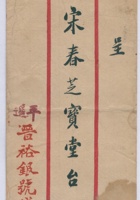 呈
宋春芝寶堂台
平遥
晉裕銀號